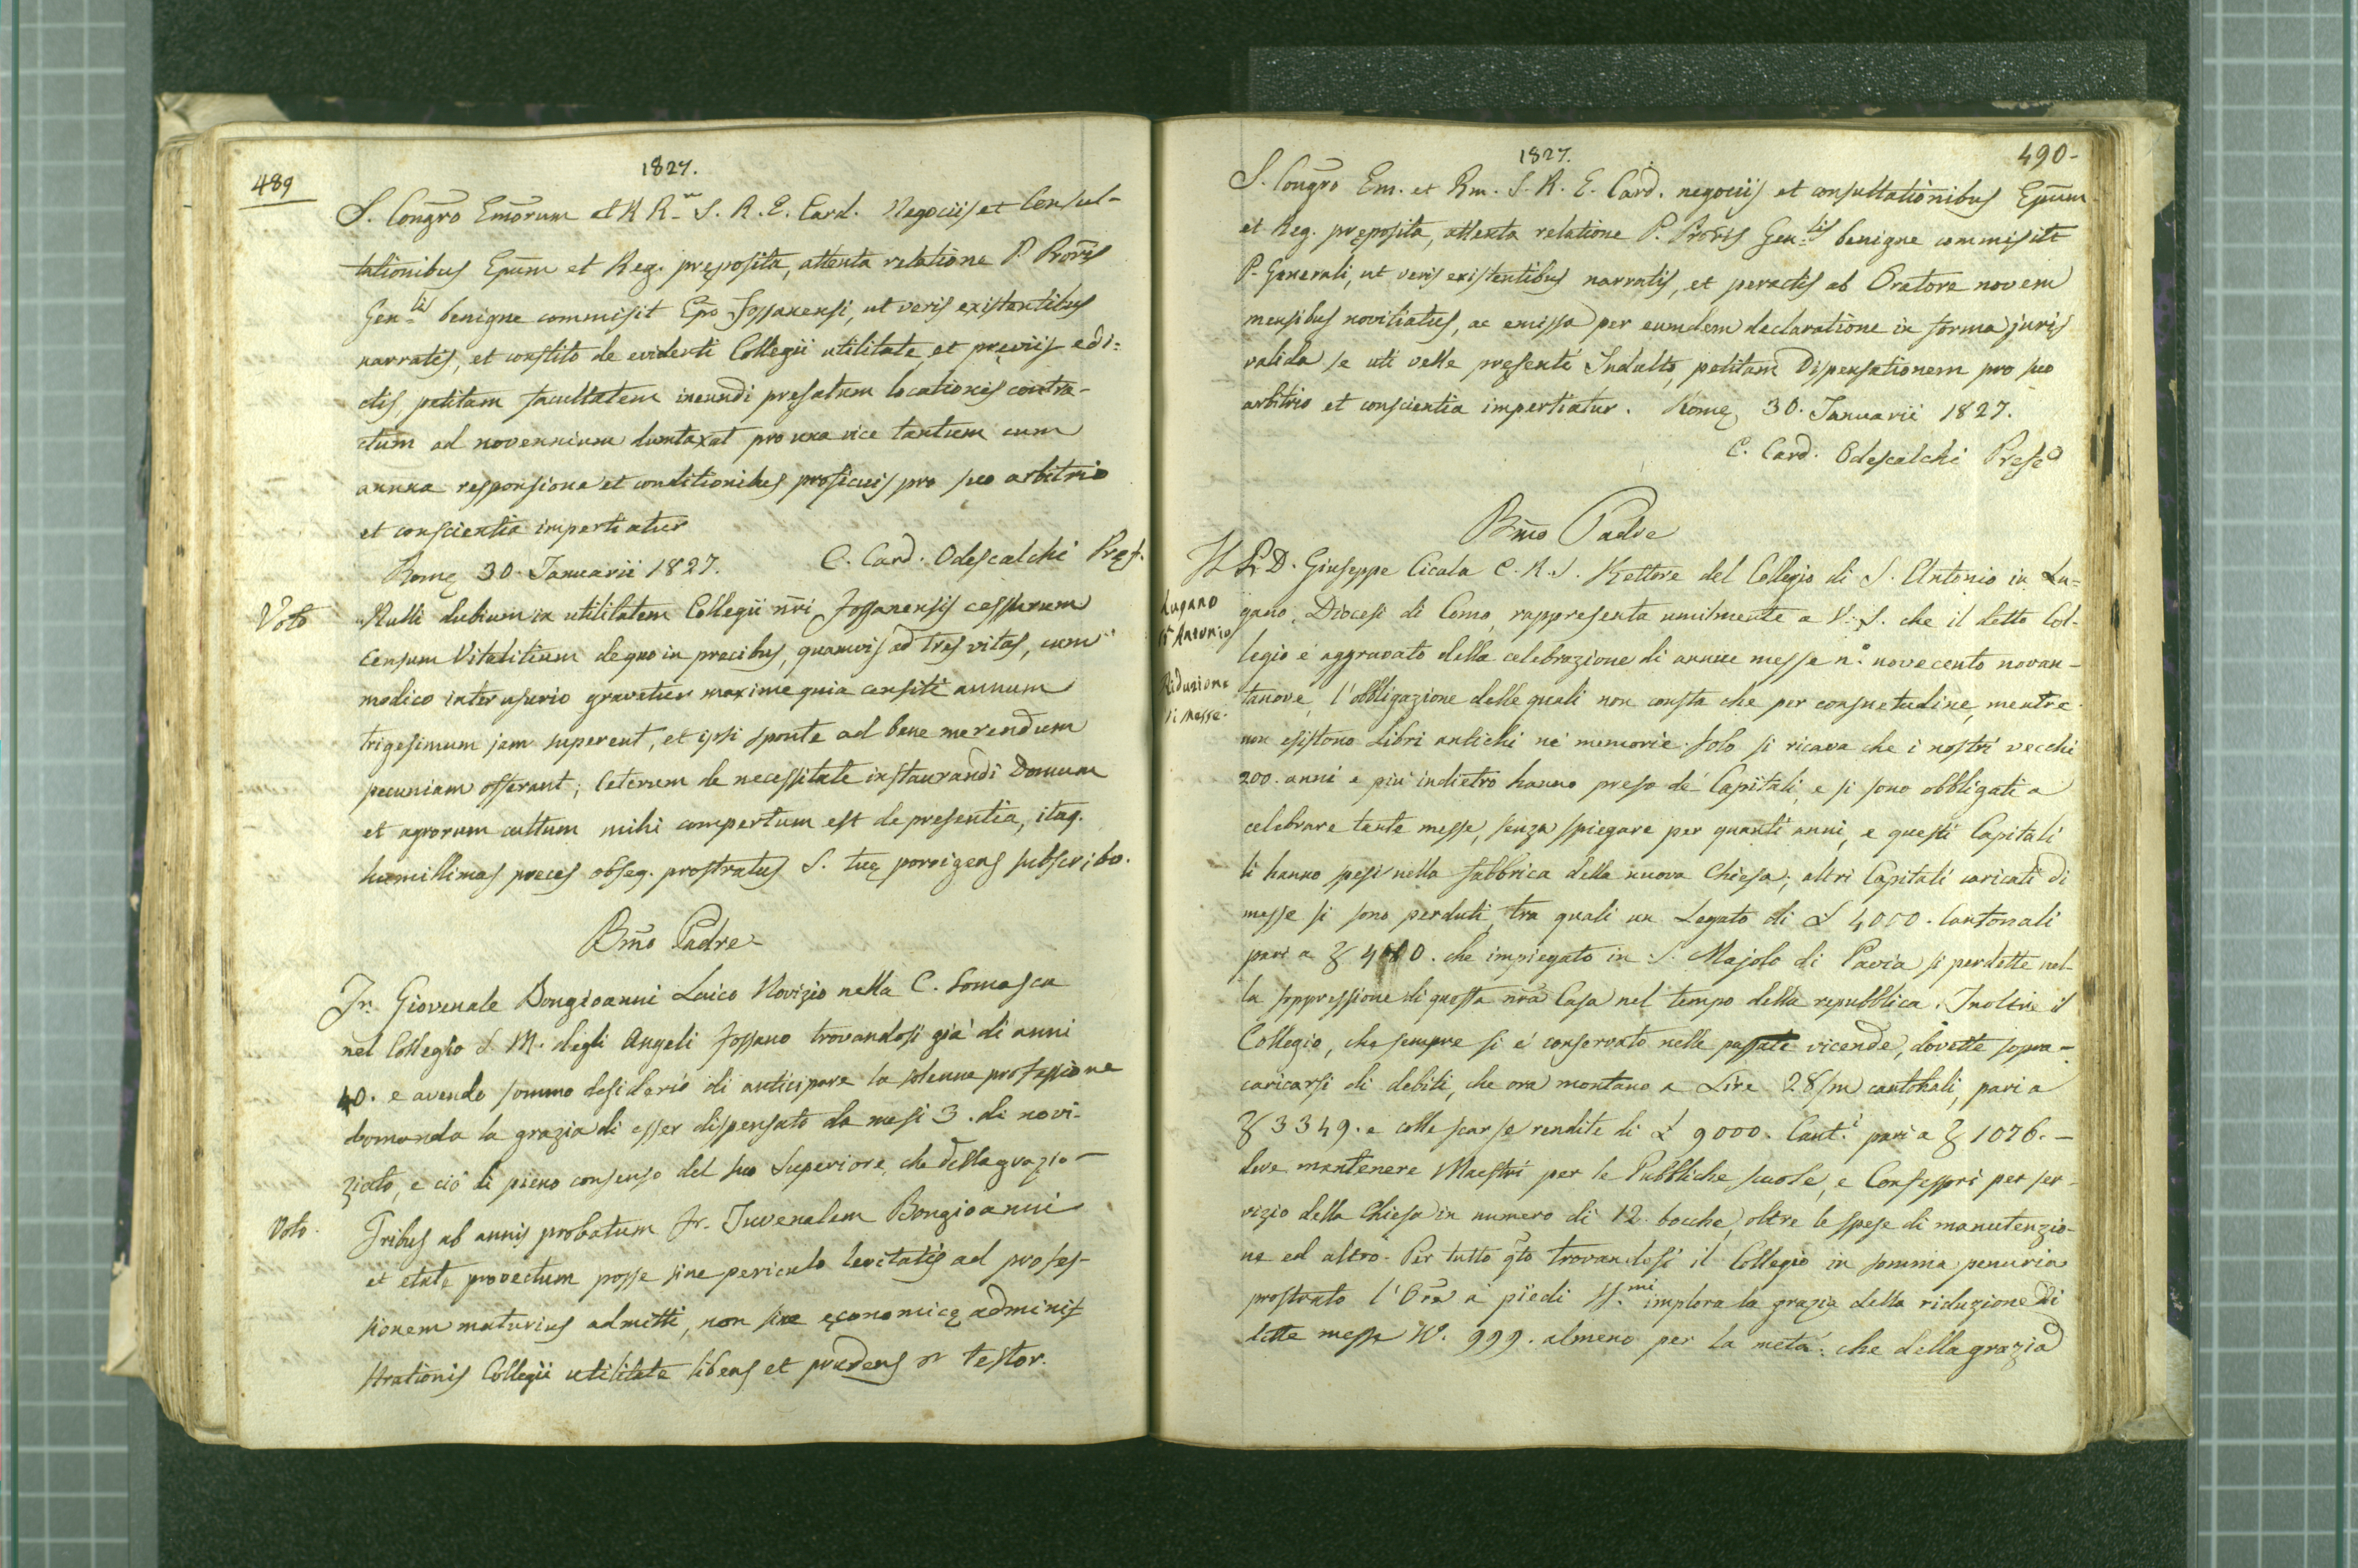 489
1827.
S. Congro Emorum et R R.m S. R. E. Card. Negociis et Consul-
tationibus Epum et Reg. pręposita, attenta relatione P. Proris
Gen.lis benigne commisit Epo Fossanensi, ut veris existentibus
narratis, et constito de evidenti Collegii utilitate, et pręviis edi=
ctis, petitam facultatem ineundi prefatum locationis contra-
ctum ad novennium dumtaxat pro una vice tantum cum
annua responsione et conditionibus proficuis pro suo arbitrio
et conscientia impertiatur
Romę 30. Januarii 1827. C. Card. Odescalchi Pręf.
Voto
Nulli dubium in utilitatem Collegii nri Fossanensis cessurum
Censum Vitalitium de quo in precibus, quamvis ad tres vitas, cum
modico interusurio gravetur maxime quia censiti annum
trigesimum jam superent, et ipsi sponte ad bene merendum
pecuniam offerant; Ceterum de necessitate instaurandi Domum
et agrorum cultum mihi compertum est de presentia, itaq.
humillimas preces obseq. prostratus S. tuę porrigens subscribo.
Bmo Padre
Fr. Giovenale Bongioanni Laico Novizio nella C. Somasca
nel Collegio S. M. degli Angeli Fossano trovandosi già di anni
40. e avendo sommo desiderio di anticipare la solenne professione
domanda la grazia di esser dispensato da mesi 3. di novi-
ziato, e ciò di pieno consenso del suo Superiore, che della grazia —
Voto.
Tribus ab annis probatum Fr. Juvenalem Bongioanni
et etate provectum posse sine periculo levitatis ad profes-
sionem maturius admitti, non sine ęconomicę adminis
strationis Collegii utilitate libens et prudens testor.
1827.
490-
S. Congro Em. et Rm. S. R. E. Card. negociis et consultationibus Epum
et Reg. pręposita, attenta relatione P. Proris Gen.lis benigne commisit
P. Generali, ut veris existentibus narratis, et peractis ab Oratore novem
mensibus novitiatus, ac emissa per eumdem declaratione in forma juris
valida se uti velle presenti Indulto, petitam Dispensationem pro suo
arbitrio et conscientia impertiatur. Romę 30. Januarii 1827.
C. Card. Odescalchi Pref.
Bmo Padre
Il P. D. Giuseppe Cicala C. R. S. Rettore del Collegio di S. Antonio in Lu=
Lugano
S. Antonio
Riduzione
di Messe.
gano, Diocesi di Como, rappresenta umilmente a V. S. che il detto Col-
legio è aggravato della celebrazione di annue messe n.o novecento novan-
tanove, l'obbligazione delle quali non consta che per consuetudine, mentre
non esistono Libri antichi né memorie. Solo si ricava che i nostri vecchi
200. anni e più indietro hanno preso de' Capitali, e si sono obbligati a
celebrare tante messe, senza spiegare per quanti anni, e questi Capitali
li hanno spesi nella fabbrica della nuova Chiesa; altri Capitali caricati di
messe si sono perduti, tra quali un Legato di L 4000. Cantonali
pari a che impiegato in S. Majolo di Pavia si perdette nel-
la soppressione di questa nra Casa nel tempo della repubblica. Inoltre il
Collegio, che sempre si è conservato nelle passate vicende, dovette sopra-
caricarsi di debiti, che ora montano a Lire 28/m cantonali, pari a
3349. e colle scarse rendite di L 9000. Cant.i pari a 1076. —
deve mantenere Maestri per le Pubbliche scuole, e Confessori per ser-
vizio della Chiesa in numero di 12. bocche, oltre le spese di manutenzio-
ne ed altro. Per tutto qto trovandosi il Collegio in somma penuria
prostrato l'Ore a' piedi SS.mi implora la grazia della riduzione di
dette messe N.o 999. almeno per la metà: che della grazia